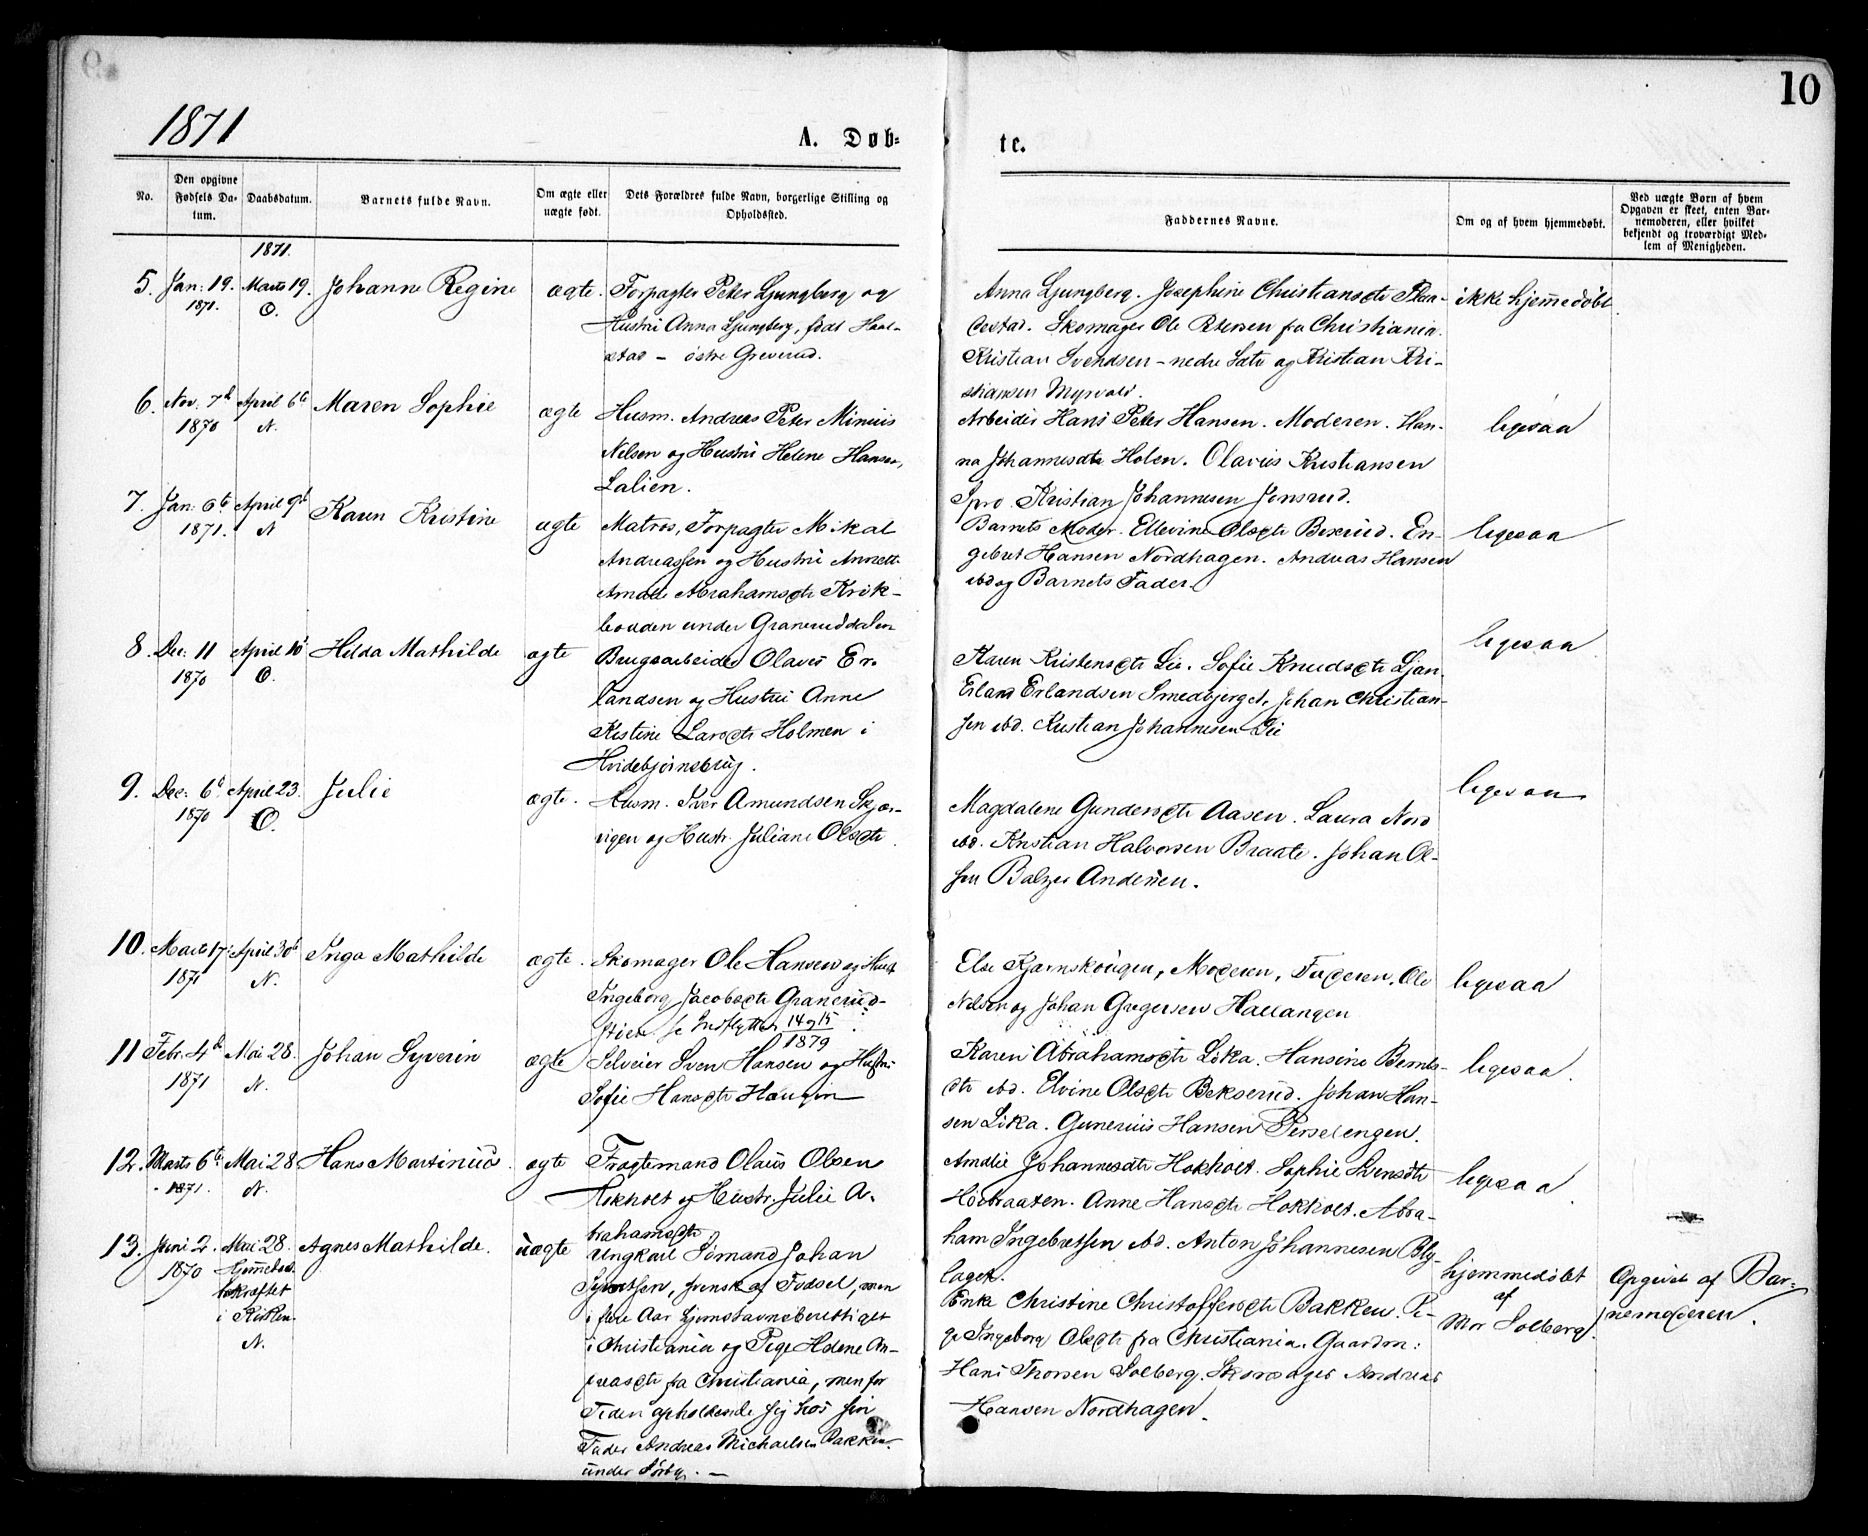 10
1871
A. Døb-
te.
No.
Den opgivne Fødsels Da-
tum.
Daabsdatum.
Barnets fulde Navn.
Om ægte eller
uægte født.
Dets Forældres fulde Navn, borgerlige Stilling og
Opholdssted.
Faddernes Navne.
Om og af hvem hjemmedøbt.
Ved uægte Børn af hvem
Opgaven er skeet, enten Bar-
nemoderen, eller hvilket
bekjendt og troværdigt Med-
lem af Menigheden.
1871.
5. Jan: 19. Marts 19. Johanne Regine ægte.
1871. O.
Forpagter Peter Ljungberg og
Hustru Anna Ljungberg, født
stad – østre Greverud.
Anna Ljungberg. Josephine
Skomager Ole Petersen fra Christiania.
Kristian Svendsen – nedre og Kristian Kri-
stiansen Myrvold.
ikke hjemmedøbt
6. Nov. 7d April 6te Maren Sophie ægte
1870 N.
Husm. Andreas Peter
Nilsen og Hustru Helene Hansen,
Lalien.
Arbeider Hans Peter Hansen. Moderen. Han-
na Johannesdtr Holen. Olavus Kristiansen
Spro. Kristian Johannesen Jonsrud.
ligesaa
7. Jan: 6te April 9d Karen Kristine ægte
1871. N
Matros, Forpagter Mikal
Andreassen og Hustru
Abrahamsdtr Krok-
bonden under Graneruddalen
Barnets Moder. Ellevine Olsdtr Bekserud. En-
gebret Hansen Nordhagen. Andreas Hansen
ibd og Barnets Fader.
ligesaa
8. Dec: 11 April 10 Hilda Mathilde ægte
1870 O.
Brugsarbeider Olavus Er-
landsen og Hustru Anne
Kistine Larsdtr Holmen i
Hvidebjørnsbrug.
Karen Kristensdtr Lie. Sofie Knudsdtr Ljan.
Erland Erlandsen Smedbjerget, Johan Christian-
sen ibd. Kristian Johannesen Lie
ligesaa
9. Dec: 6d April 23. Julie ægte.
1870 O.
Husm. Iver Amundsen Skjær-
vigen og Hustr. Juliane Olsdtr.
Magdalene Gundersdtr Aasen. Laura Nord
ibd. Kristian Halvorsen Braate. Johan Ol-
sen Balzer Andersen.
ligesaa
10. Marts 17 April 30te Inga Mathilde ægte.
1871 N.
Skomager Ole Hansen og Hustr
Ingeborg Jacobsdtr Granerud-
stien. se Indflyttet 14 og 15
1879
Else Kjærnskougen, Moderen, Faderen. Ole
Nilsen og Johan Gregersen Hallangen
ligesaa
11 Febr. 4d Mai 28. Johan Syverin ægte
1871 N.
Selveier Sven Hansen og Hustru
Sofie Hansdtr Haugen
Karen Abrahamsdtr Loka. Hansine Bernts-
dtr ibd. Elvine Olsdtr Bekserud. Johan Han-
sen Loka. Gunerius Hansen Persdengen.
ligesaa.
12. Marts 6te Mai 28 Hans Martinus. ægte
1871. N.
Fragtemand Olaus Olsen
Hokholt og Hustr. Julie A-
brahamsdtr.
Amalie Johannesdtr Hokholt. Sophie Svensdtr
Høibraaten. Anne Hansdtr Hokholt. Abra-
ham Ingebretsen ibd. Anton Johannesen Bly-
laget.
ligesaa.
13. Juni 2. Mai 28. Agnes Mathilde. uægte
1870 Hjemmedaab
bekræftet
i Kirken
N.
Ungkarl Sømand Johan
svensk af Fødsel, men
i flere Aar hjemstavnsberettiget
i Christiania og Pige Helene An-
dreasdtr fra Christiania, men for
Tiden opholdende sig hos sin
Fader Andreas Michaelsen Bakken
under Sørby. –
Enke Christine Christoffersdtr Bakken. Pi-
ge Ingeborg Olsdtr fra Christiania. Gaardm:
Hans Thorsen Solberg. Skomager Andreas
Hansen Nordhagen.
hjemmedøbt
af
Mor Solberg.
Opgivet af Bar-
nemoderen.